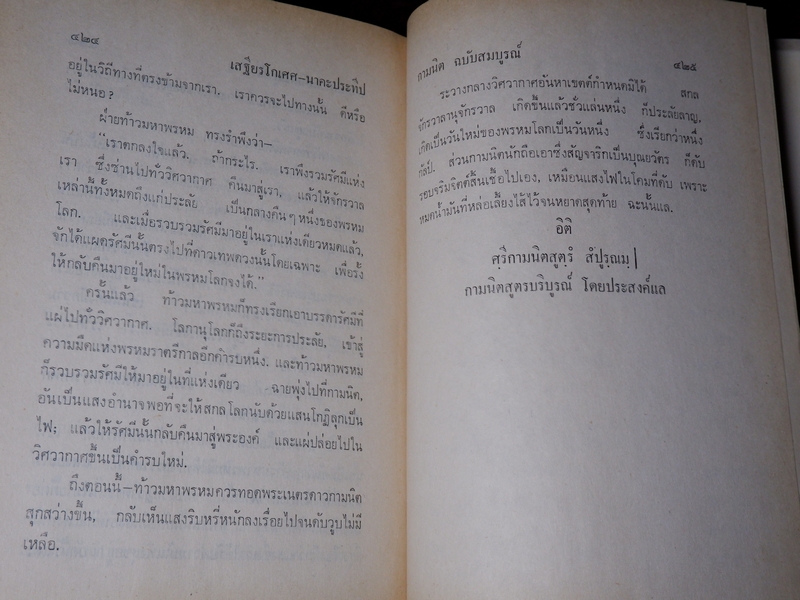 ๔๒๔
เสฐียรโกเศศ–นาคะประทีป
อยู่ในวิถีทางที่ตรงข้ามจากเรา. เราควรจะไปทางนั้น ดีหรือ
ไม่หนอ ?
ฝ่ายท้าวมหาพรหม ทรงรำพึงว่า–
“เราตกลงใจแล้ว. ถ้ากระไร. เราพึงรวมรัศมีแห่ง
เรา ซึ่งซ่านไปทั่ววิศวากาศ คืนมาสู่เรา, แล้วให้จักรวาล
เหล่านี้ทั้งหมดถึงแก่ประลัย เป็นกลางคืนๆ หนึ่งของพรหม
โลก. และเมื่อรวบรวมรัศมีมาอยู่ในเราแห่งเดียวหมดแล้ว,
จักได้แผดรัศมีนั้นตรงไปที่ดาวเทพดวงนั้นโดยเฉพาะ เพื่อรั้ง
ให้กลับคืนมาอยู่ใหม่ในพรหมโลกจงได้.”
ครั้นแล้ว ท้าวมหาพรหมก็ทรงเรียกเอาบรรดารัศมีที่
แผ่ไปทั่ววิศวากาศ. โลกานุโลกก็ถึงระยะการประลัย, เข้าสู่
ความมืดแห่งพรหมราตรีกาลอีกคำรบหนึ่ง. และท้าวมหาพรหม
ก็รวบรวมรัศมีให้มาอยู่ในที่แห่งเดียว ฉายพุ่งไปที่กามนิต,
อันเป็นแสงอำนาจพอที่จะให้สกลโลกนับด้วยแสนโกฏิลุกเป็น
ไฟ; แล้วให้รัศมีนั้นกลับคืนมาสู่พระองค์ และแผ่ปล่อยไปใน
วิศวากาศขึ้นเป็นคำรบใหม่.
ถึงตอนนี้–ท้าวมหาพรหมควรทอดพระเนตรดาวกามนิต
สุกสว่างขึ้น, กลับเห็นแสงริบหรี่หนักลงเรื่อยไปจนดับวูบไม่มี
เหลือ.
กามนิต ฉบับสมบูรณ์
๔๒๕
ระวางกลางวิศวากาศอันหาเขตต์กำหนดมิได้ สกล
จักรวาลานุจักรวาล เกิดขึ้นแล้วชั่วแล่นหนึ่ง ก็ประลัยลาญ,
เกิดเป็นวันใหม่ของพรหมโลกเป็นวันหนึ่ง ซึ่งเรียกว่าหนึ่ง
กัลป์. ส่วนกามนิตนักถือเอาซึ่งสัญจาริกเป็นบุณยวัตร ก็ดับ
รอบจริมจิตต์สิ้นเชื้อไปเอง, เหมือนแสงไฟในโคมที่ดับ เพราะ
หมดน้ำมันที่หล่อเลี้ยงไส้ไว้จนหยาดสุดท้าย ฉะนั้นแล.
อิติ
ศฺรีกามนิตสูตฺรํ สํปูรฺณมฺ|
กามนิตสูตรบริบูรณ์ โดยประสงค์แล